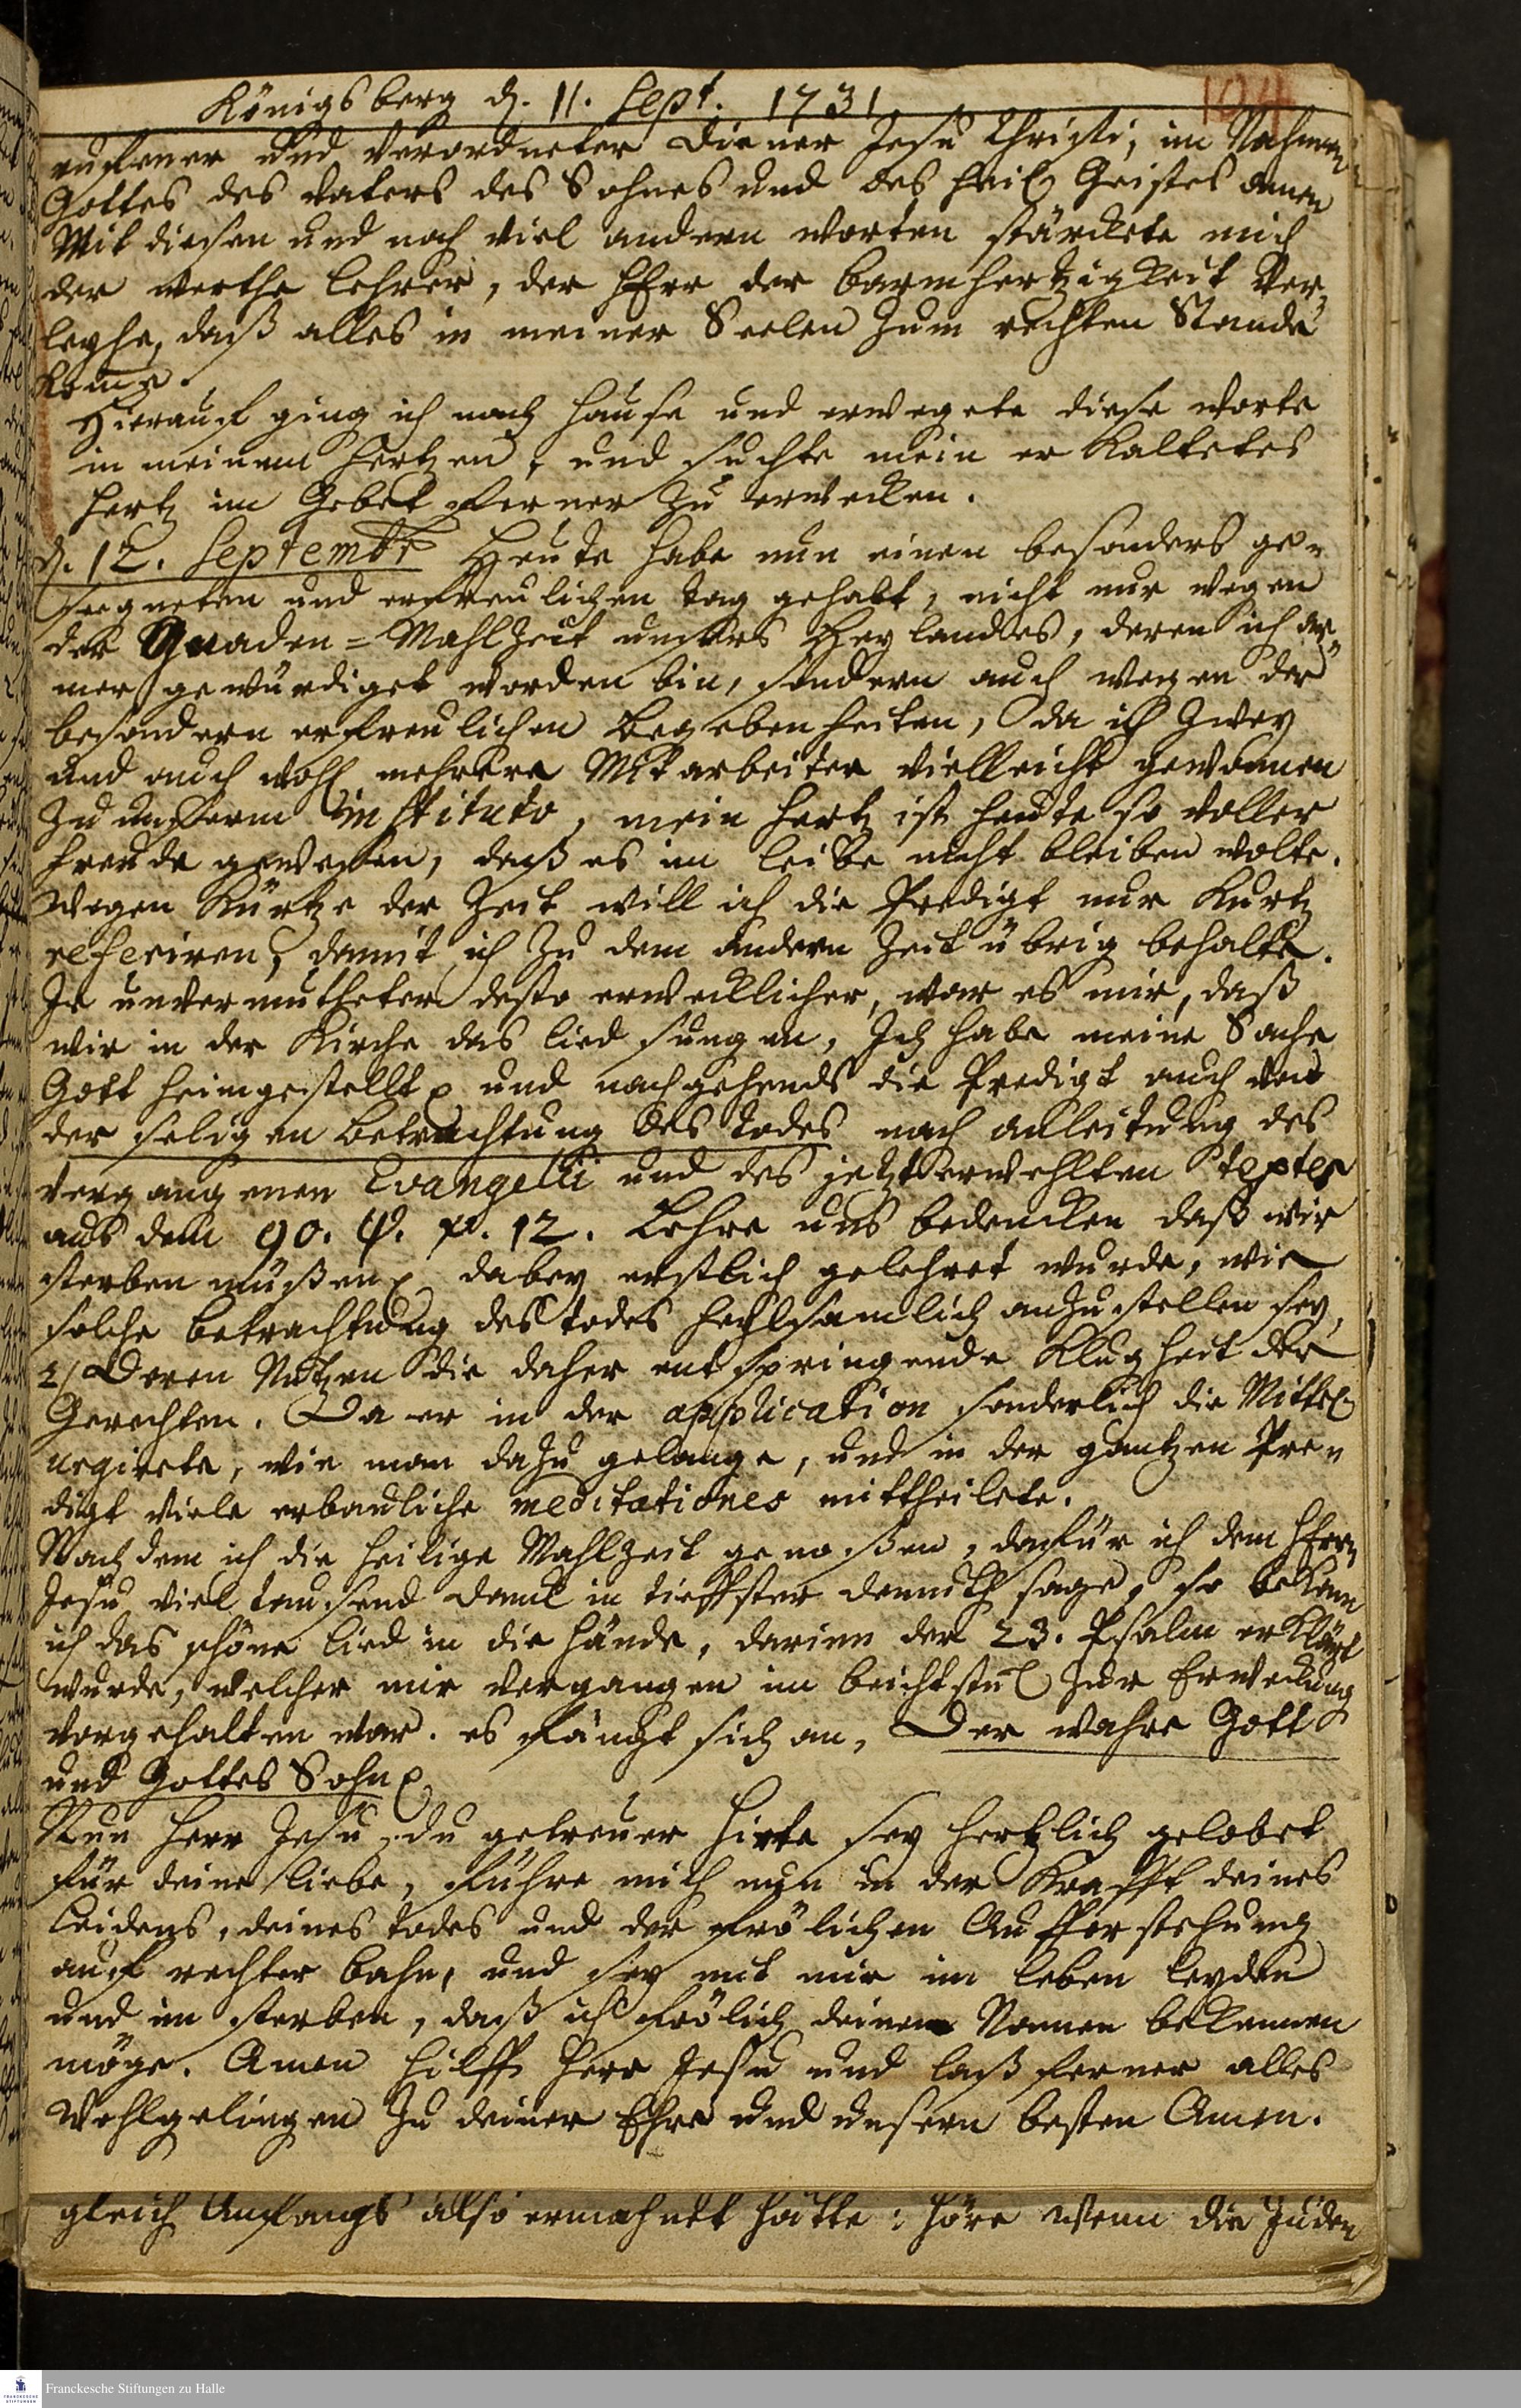 Königsberg d. 11. Sept. 1731
104
ruffener und verordneter Diener Jesu Christi, im Nahmen
Gottes des Vaters des Sohnes und des heil Geistes amen
Mit diesen und noch viel andern worten stärckete mich
der werthe Lehrer, der HErr der barmhertzigkeit ver-
leyhe, daß alles in meiner Seelen zum rechten Stande
kome.
Hierauf ging ich nach Hause und erwegete diese worte
in meinem Hertzen, und suchte mein erkaltetes
Hertz im Gebet ferner zu erwecken.
d. 12. Septembr Heute habe nun einen besonders ge-
seegneten und erfreulichen tag gehabt, nicht nur wegen
der Gnaden-Mahlzeit unsers Heylandes, deren ich ar-
mer gewürdiget worden bin, sondern auch wegen der
besondern erfreulichen Begebenheiten, da ich zwey
und auch wohl mehrere Mitarbeiter vielleicht gewonnen
zu unserm instituto, mein Hertz ist heute so voller
freude gewesen, daß es im leibe nicht bleiben wolte.
Wegen Kürtze der Zeit will ich die Predigt nur kurtz
referiren, damit ich zu dem andern Zeit übrig behalte.
Je unvermutheter desto erwecklicher, war es mir, daß
wir in der Kirche das lied sungen, Ich habe meine Sache
Gott heimgestellt und nachgehends die Predigt auch von
der seligen betrachtung des todes nach anleitung des
vergangenen Evangelii und des jetzt erwehlten textes
aus dem 90. ψ. v. 12. Lehre uns bedencken daß wir
sterben müßen dabey erstlich gelehret wurde, wie
solche betrachtung des todes heylsamlich anzustellen sey,
2/ Deren Nutzen die daher entspringende Klugheit der
Gerechten. Da er in der application sonderlich die Mittel
urgirete, wie man dazu gelange, und in der gantzen Pre-
digt viele erbauliche meditationes mittheilete.
Nach dem ich die heilige Mahlzeit genoßen, dafür ich dem HErrn
Jesu viel tausend danck in tieffster demuth sage, so bekam
ich das schöne lied in die Hände, darinn der 23. Psalm erklärt
wurde, welcher mir vergangen im beichtstul zur Erweckung
vorgehalten war. es fängt sich an, Der wahre Gott
und Gottes Sohn
Nun Herr Jesu, du getreuer Hirte sey hertzlich gelobet
für deine liebe, führe mich nun in der Krafft deines
Leidens, deines todes und der frölichen Aufferstehung
auf rechter bahn, und sey mit mir im leben leyden
und im sterben, daß ich frölich deinen Namen bekennen
möge. Amen hilff Herr Jesu und laß ferner alles
Wohlgelingen zu deiner Ehre und unserm besten Amen.
gleich Anfangs also ermahnet hatte: höre wenn die Juden
Franckesche Stiftungen zu Halle